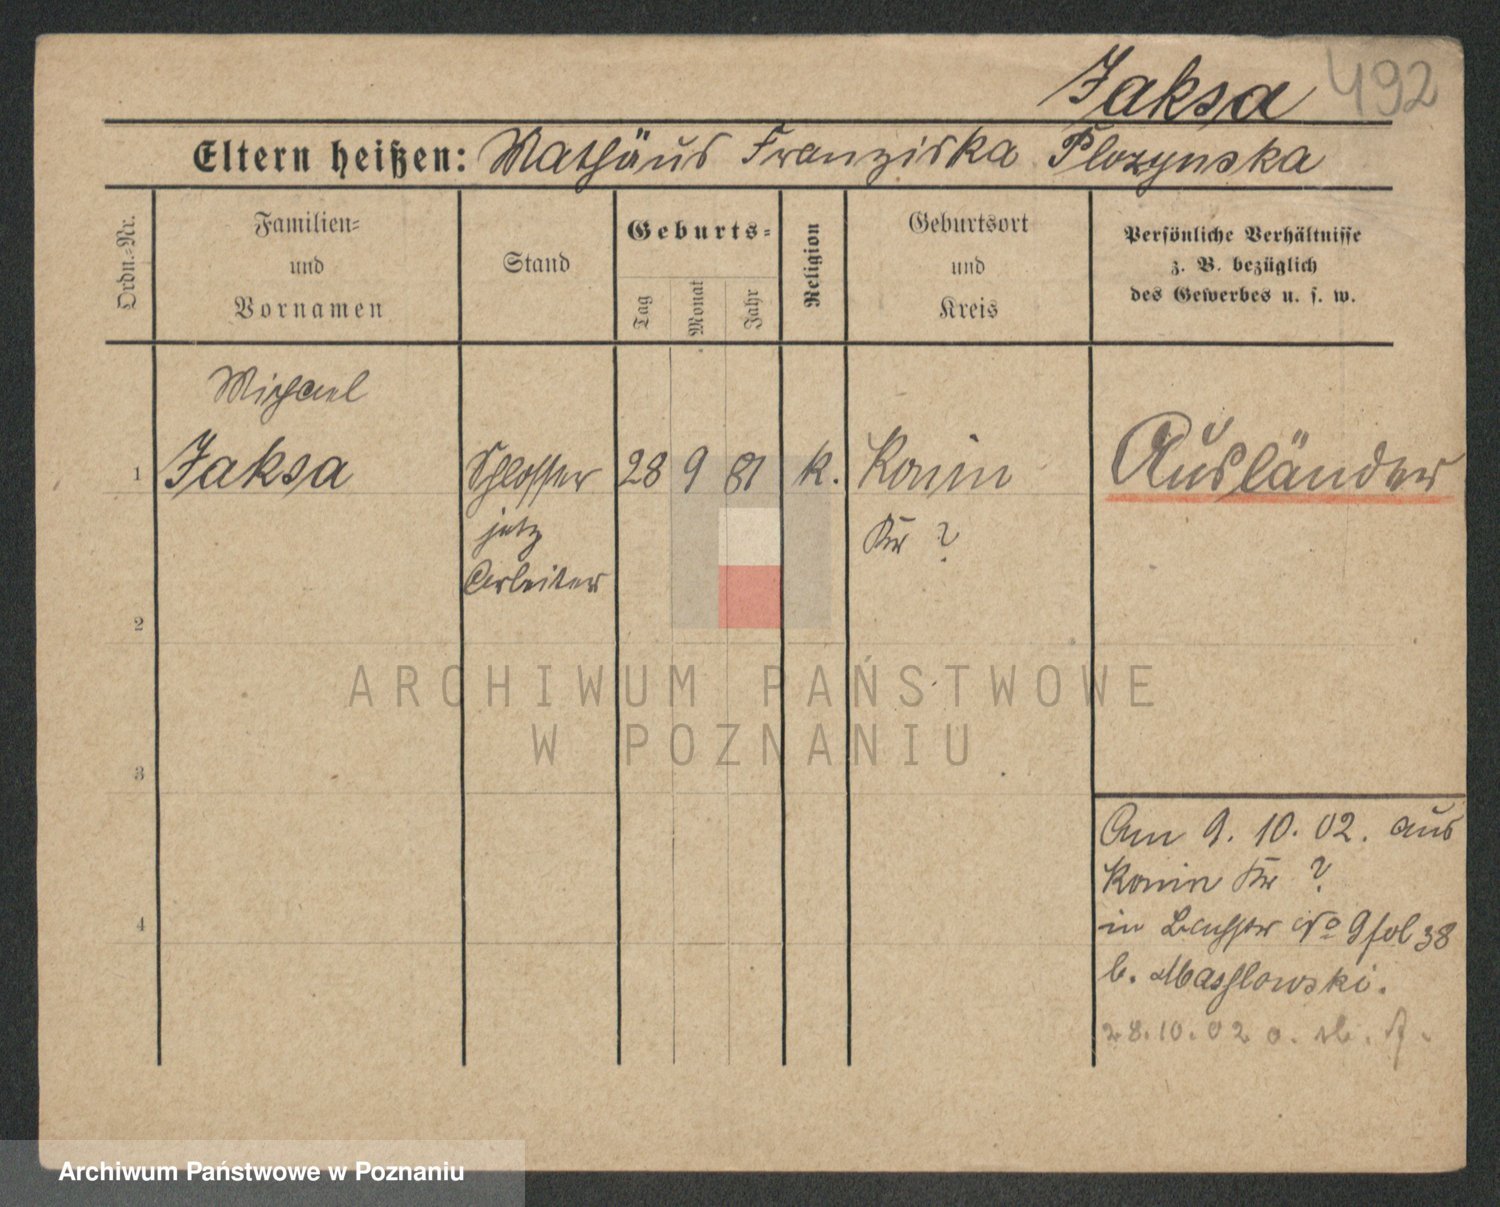 Jaksa 492
Eltern heißen: Mathäus Franziska Plozynska
Ordn.-Nr.
Familien- und Vornamen
Stand
Geburts-
Tag
Monat
Jahr
Religion
Geburtsort und Kreis
Persönliche Verhältnisse
z. B. bezüglich
des Gewerbes u. s. w.
Michael
1 Jaksa Schlosser 28 9 81 k. Konin Ausländer
jetz Kr ?
Arbeiter
2
3
4
Am 9. 10. 02. aus
Konin Kr ?
in No 9 fol 38
b. Mashlowski.
28.10.02 o.
ARCHIWUM PAŃSTWOWE
W POZNANIU
Archiwum Państwowe w Poznaniu